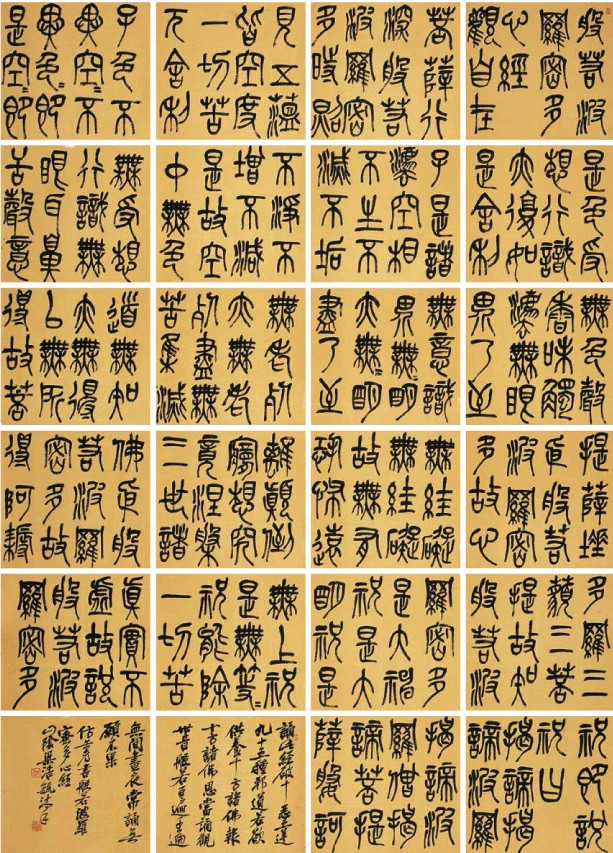 般若波
羅密多
心經
觀自在
菩薩行
深般若
波羅密
多時照
見五蘊
皆空度
一切苦
厄舍利
子色不
異空=不
異色=即
是空=即
是色受
想行識
亦復如
是舍利
子是諸
灋空相
不生不
滅不垢
不淨不
增不減
是故空
中無色
無受想
行識無
眼耳鼻
舌聲意
無色聲
香味觸
灋無眼
界乃至
無意識
界無=明
亦無=明
盡乃至
無老死
亦無老
死盡無
苦集滅
道無知
亦無得
以無所
得故菩
提薩埵
依般若
波羅密
多故心
無絓礙
無絓礙
故無有
恐怖遠
離顛倒
夢想究
竟涅槃
三世諸
佛依般
若波羅
密多故
得阿耨
多羅三
藐三菩
提故知
般若波
羅密多
是大神
祝是大
明祝是
無上祝
是無等=
祝能除
一切苦
真實不
虛故說
般若波
羅密多
祝即說
祝曰
揭諦揭
諦波羅
揭諦波
羅僧揭
諦菩提
薩婆訶
誦此經破十惡五逆
九十五種邪道若欲
供養十方諸佛報
十方諸佛恩當誦觀
世音般若百遍千遍
無間晝夜常誦無
願不果
書般若波羅
密多心經